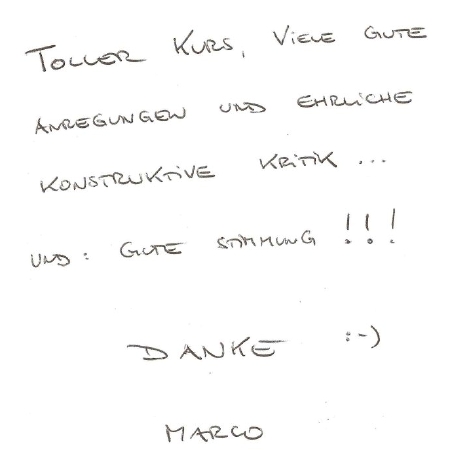 TOLLER KURS, VIELE GUTE
ANREGUNGEN UND EHRLICHE
KONSTRUKTIVE KRITIK ...
UND: GUTE STIMMUNG !!!
DANKE :-)
MARCO